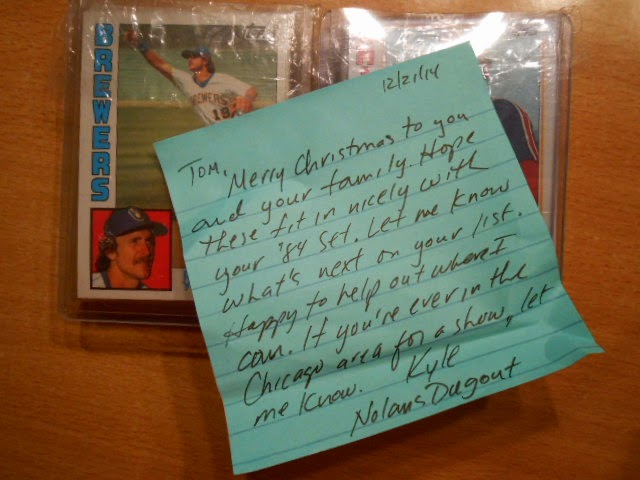 BREWERS
BREWERS
19
12/21/14
Tom,
Merry Christmas to you
and your family. Hope
these fit in nicely with
your '84 set. Let me know
what's next on your list.
Happy to help out where I
can. If you're ever in the
Chicago area for a show, let
me know. Kyle
Nolans Dugout